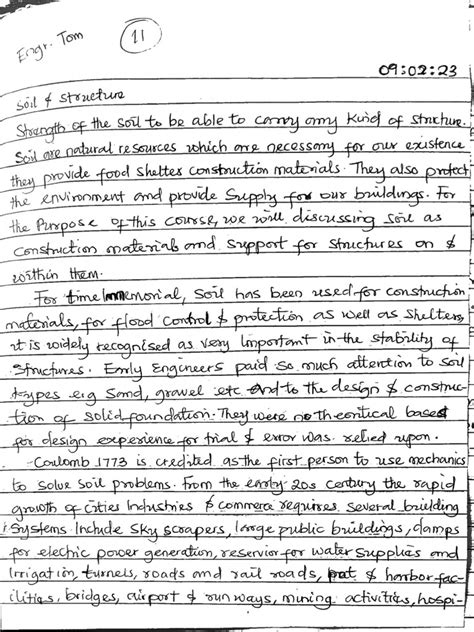 Engr. Tom
11
09:02:23
Soil & structure
Strength of the soil to be able to carry any kind of structure.
Soil are natural resources which are necessary for our existence
they provide food shelter construction materials. They also protect
the environment and provide supply for our buildings. For
the Purpose of this course, we will discussing soil as
construction material and support for structures on &
within them.
For time Immemorial, soil has been used for construction
materials, for flood control & protection as well as shelters,
it is widely recognised as very important in the stability of
structures. Early Engineers paid so much attention to soil
types e.g sand, gravel etc and to the design & construc-
tion of solid foundation. They were no theoritical based
for design experience for trial & error was relied upon.
Coulomb 1773 is credited as the first person to use mechanics
to solve soil problems. From the early 20s century the rapid
growth of cities Industries & commerce requires several building
systems Include sky scrapers, large public buildings, damps
for electric power generation, reservior for water supplies and
Irrigation, tunnels, roads and rail roads, & harbor fac-
ilities, bridges, airport & run ways, mining activities, hospi-